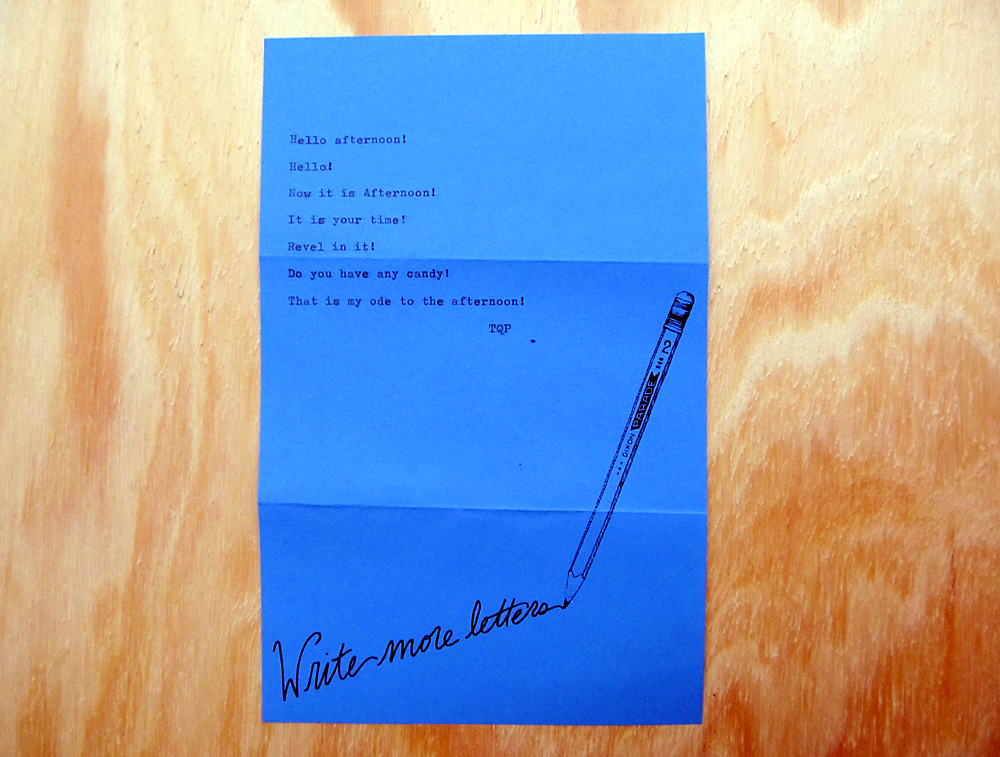 Hello afternoon!
Hello!
Now it is Afternoon!
It is your time!
Revel in it!
Do you have any candy!
That is my ode to the afternoon!
TQP
USA DIXON PARADE 2
Write more letters